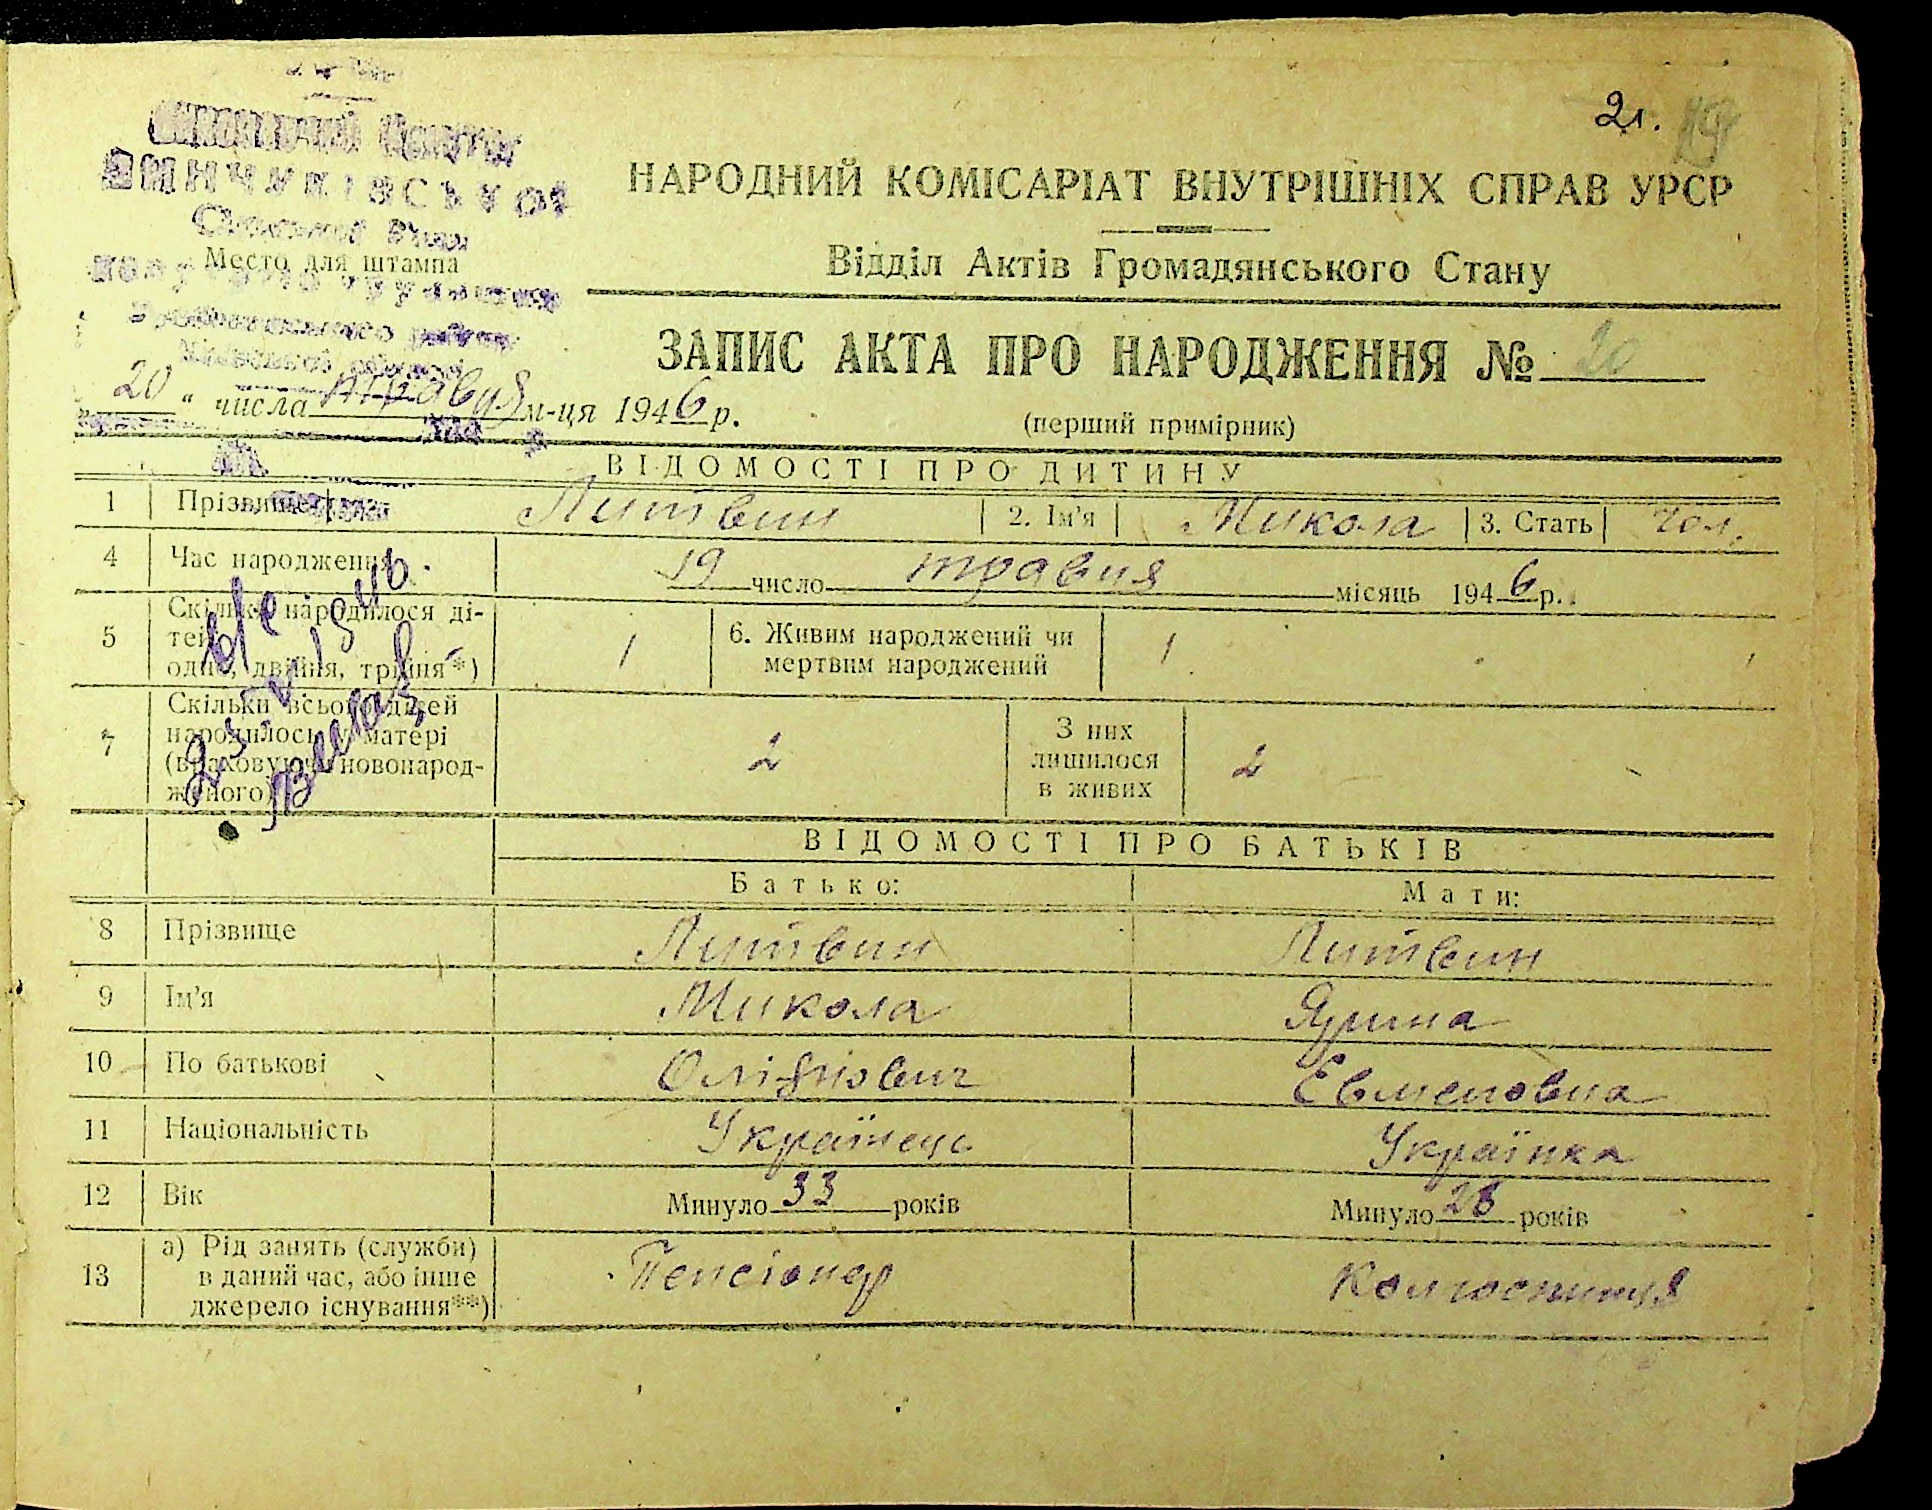 21.
НАРОДНИЙ КОМІСАРІАТ ВНУТРІШНІХ СПРАВ УРСР
Відділ Актів Громадянського Стану
Место для штампа
ЗАПИС АКТА ПРО НАРОДЖЕННЯ № 20
„ 20 “ числа травня м-ця 1946 р.
(перший примірник)
ВІДОМОСТІ ПРО ДИТИНУ
1 Прізвище Литвин 2. Ім'я Микола 3. Стать Чол.
4 Час народження 19 число травня місяць 1946 р.
5 Скільки народилося ді-
тей
одно, двійня, трійня*) 1
6. Живим народжений чи
мертвим народжений 1
7 Скільки всього дітей
народилось у матері
(враховуючи новонарод-
женого) 2
З них
лишилося
в живих 2
ВІДОМОСТІ ПРО БАТЬКІВ
Батько: Мати:
8 Прізвище Литвин Литвин
9 Ім'я Микола Ярина
10 По батькові Евменовна
11 Національність Українець Українка
12 Вік Минуло 33 років Минуло 28 років
13 а) Рід занять (служби)
в даний час, або інше
джерело існування**) Пенсіонер Колгоспниця